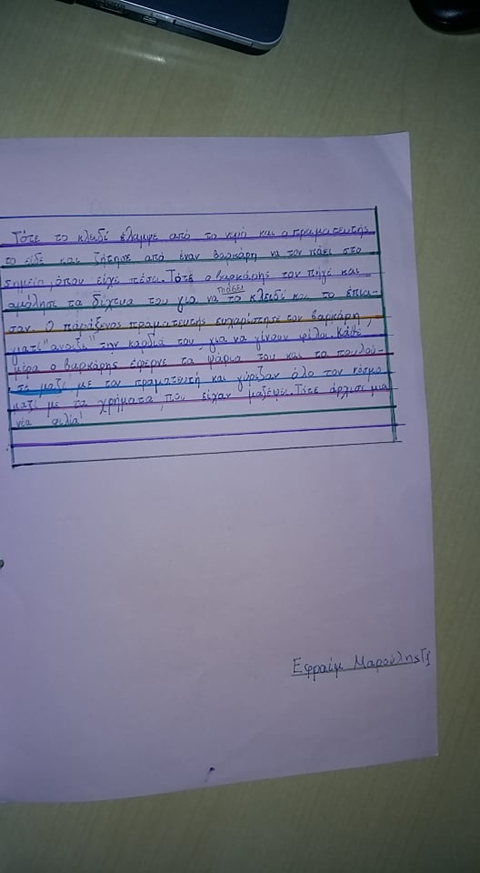 Τότε το κλειδί έλαμψε από το νησί και ο πραματευτής
το είδε και ζήτησε από έναν βαρκάρη να τον πάει στο
σημείο, όπου είχε πέσει. Τότε ο βαρκάρης τον πήγε και
αμόλησε τα δίχτυα του για να πιάσει το κλειδί και το έπια-
σαν. Ο παράξενος πραματευτής ευχαρίστησε τον βαρκάρη,
γιατί "άνοιξε" την καρδιά του για να γίνουν φίλοι. Κάθε
μέρα ο βαρκάρης έφερνε τα ψάρια του και τα πουλού-
σε μαζί με τον πραματευτή και γύριζαν όλο τον κόσμο
μαζί με τα χρήματα, που είχαν μαζέψει. Τότε άρχισε μια
νέα φιλία!
Εφραίμ Μαρούλης